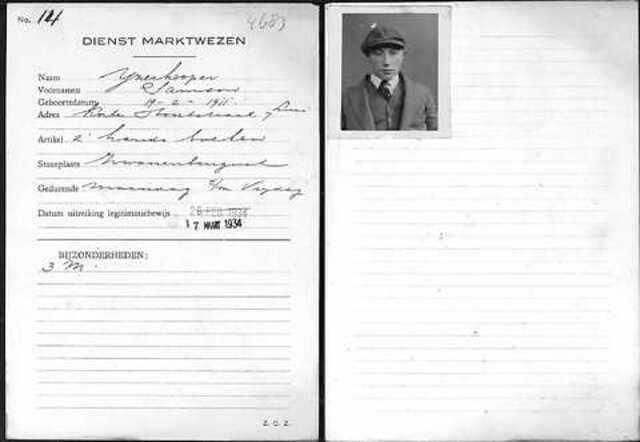 No. 14
4683
DIENST MARKTWEZEN
Naam IJzerkooper
Voornamen Samson
Geboortedatum 19-2-1911
Adres Houtstraat 7 huis
Artikel 2e hands boeken
Staanplaats Zwanenburgwal
Gedurende Maandag t/m Vrijdag
Datum uitreiking legitimatiebewijs 26 FEB 1934
17 MAART 1934
BIJZONDERHEDEN:
3 M.
Z. O. Z.